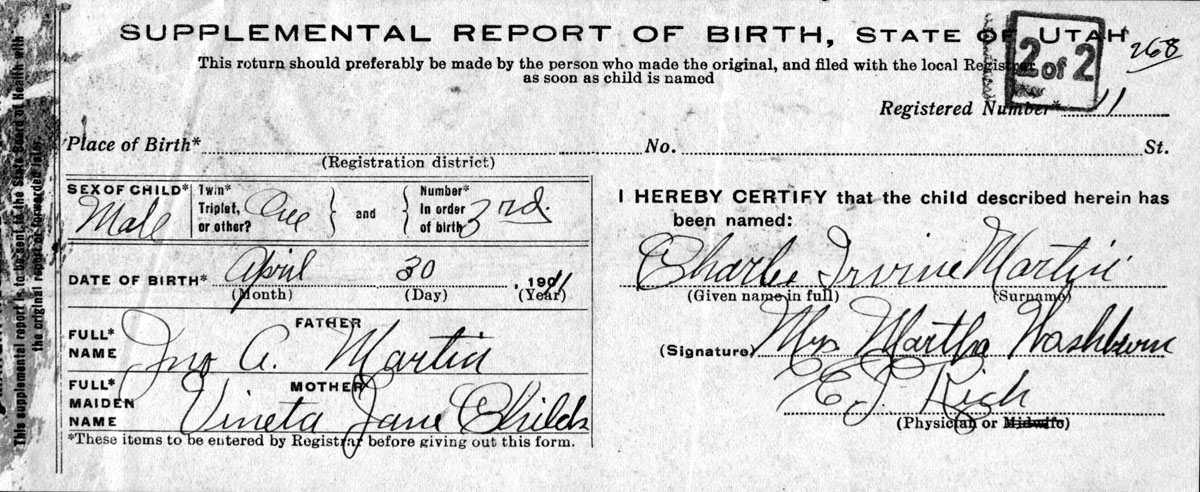 SUPPLEMENTAL REPORT OF BIRTH, STATE OF UTAH
2 of 2
268
This return should preferably be made by the person who made the original, and filed with the local Registrar
as soon as child is named
Registered Number* 11
Place of Birth* No. St.
(Registration district)
SEX OF CHILD* Male
Twin* Triplet, or other? One } and { Number* In order of birth 3rd.
DATE OF BIRTH* April 30, 1911
(Month) (Day) (Year)
FATHER
FULL* NAME Jno A. Martin
MOTHER
FULL* MAIDEN NAME Vineta Jane Childs
*These items to be entered by Registrar before giving out this form.
I HEREBY CERTIFY that the child described herein has
been named:
Charles Irvine Martin
(Given name in full) (Surname)
(Signature) Mrs Martha Washburn
E. J. Rich
(Physician or Midwife)
This supplemental report is to be sent to the State Board of Health with
the original report or forwarded later.